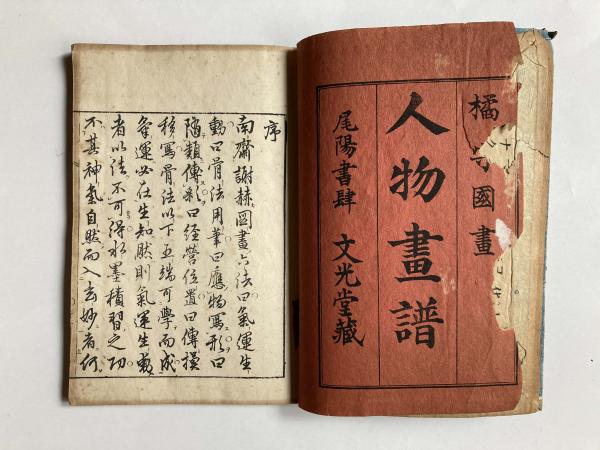 橘 國畫
人物畫譜
尾陽書肆 文光堂藏
序
南齋謝赫圖畫六法曰氣運生
動曰骨法用筆曰應物寫形曰
隨類傳彩曰經營位置曰傳摸
移寫骨法以下五端可學而成
氣運必在生知然則氣運生動
者以法不可得水墨積習之功
不其神氣自然而入玄妙者何